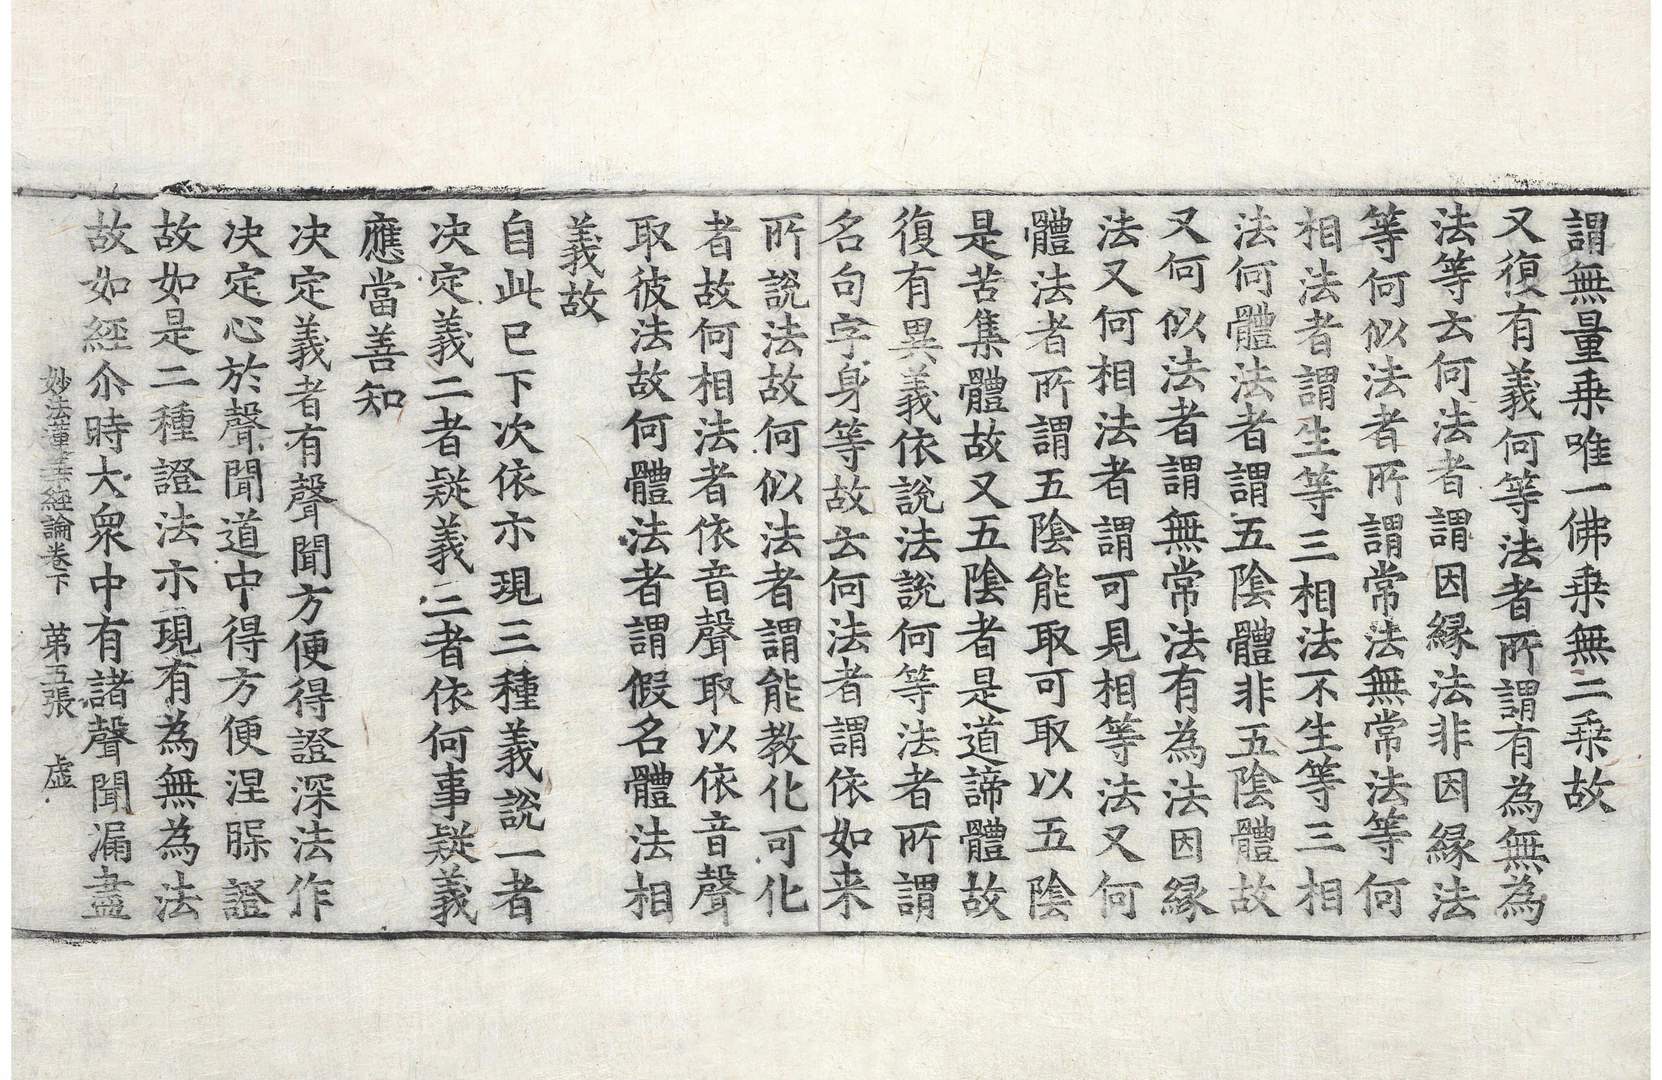 謂無量乗唯一佛乗無二乗故
又復有義何等法者所謂有為無為
法等云何法者謂因縁法非因縁法
等何似法者所謂常法無常法等何
相法者謂生等三相法不生等三相
法何體法者謂五陰體非五陰體故
又何似法者謂無常法有為法因縁
法又何相法者謂可見相等法又何
體法者所謂五陰能取可取以五陰
是苦集體故又五陰者是道諦體故
復有異義依說法說何等法者所謂
名句字身等故云何法者謂依如来
所說法故何似法者謂能教化可化
者故何相法者依音聲取以依音聲
取彼法故何體法者謂假名體法相
義故
自此已下次依示現三種義說一者
决定義二者疑義三者依何事疑義
應當善知
决定義者有聲聞方便得證深法作
决定心於聲聞道中得方便涅槃證
故如是二種證法示現有為無為法
故如經尒時大衆中有諸聲聞漏盡
妙法蓮華經論卷下　第五張　虛